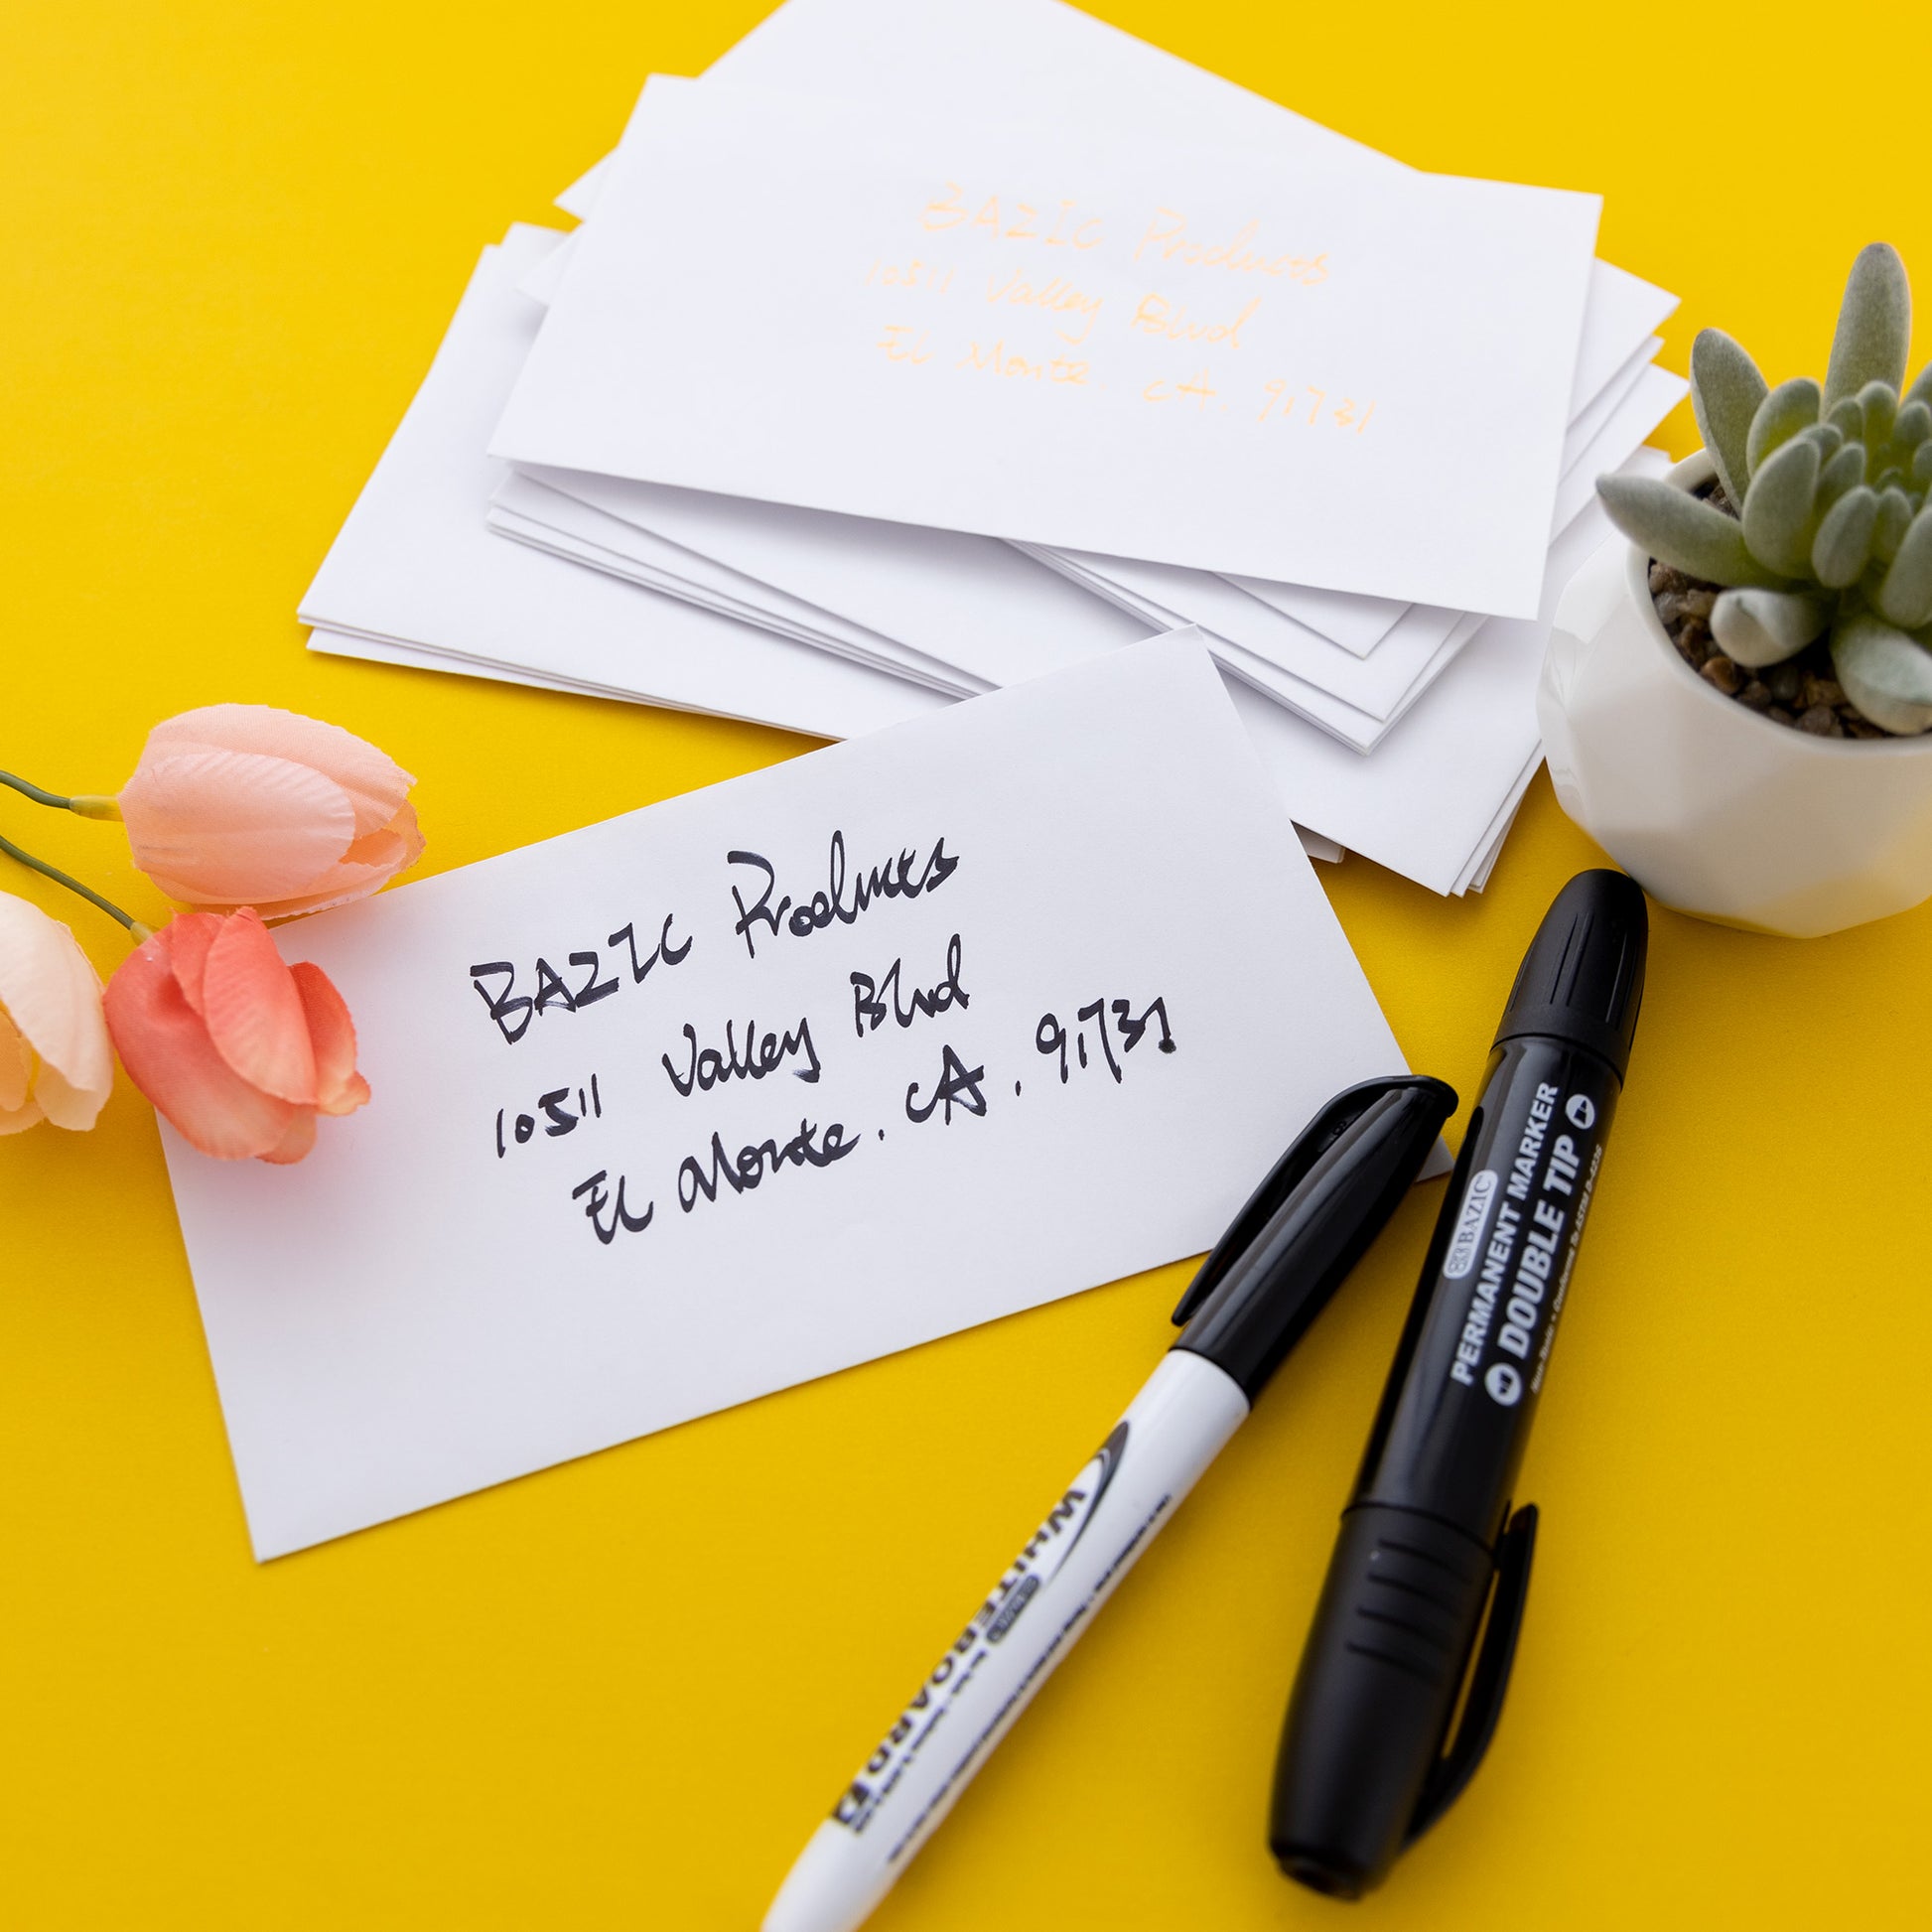 BAZIC Products
10511 Valley Blvd
El Monte. CA. 91731
BAZIC Products
10511 Valley Blvd
El Monte. CA. 91731
BAZIC
PERMANENT MARKER
DOUBLE TIP
WHITEBOARD
BAZIC